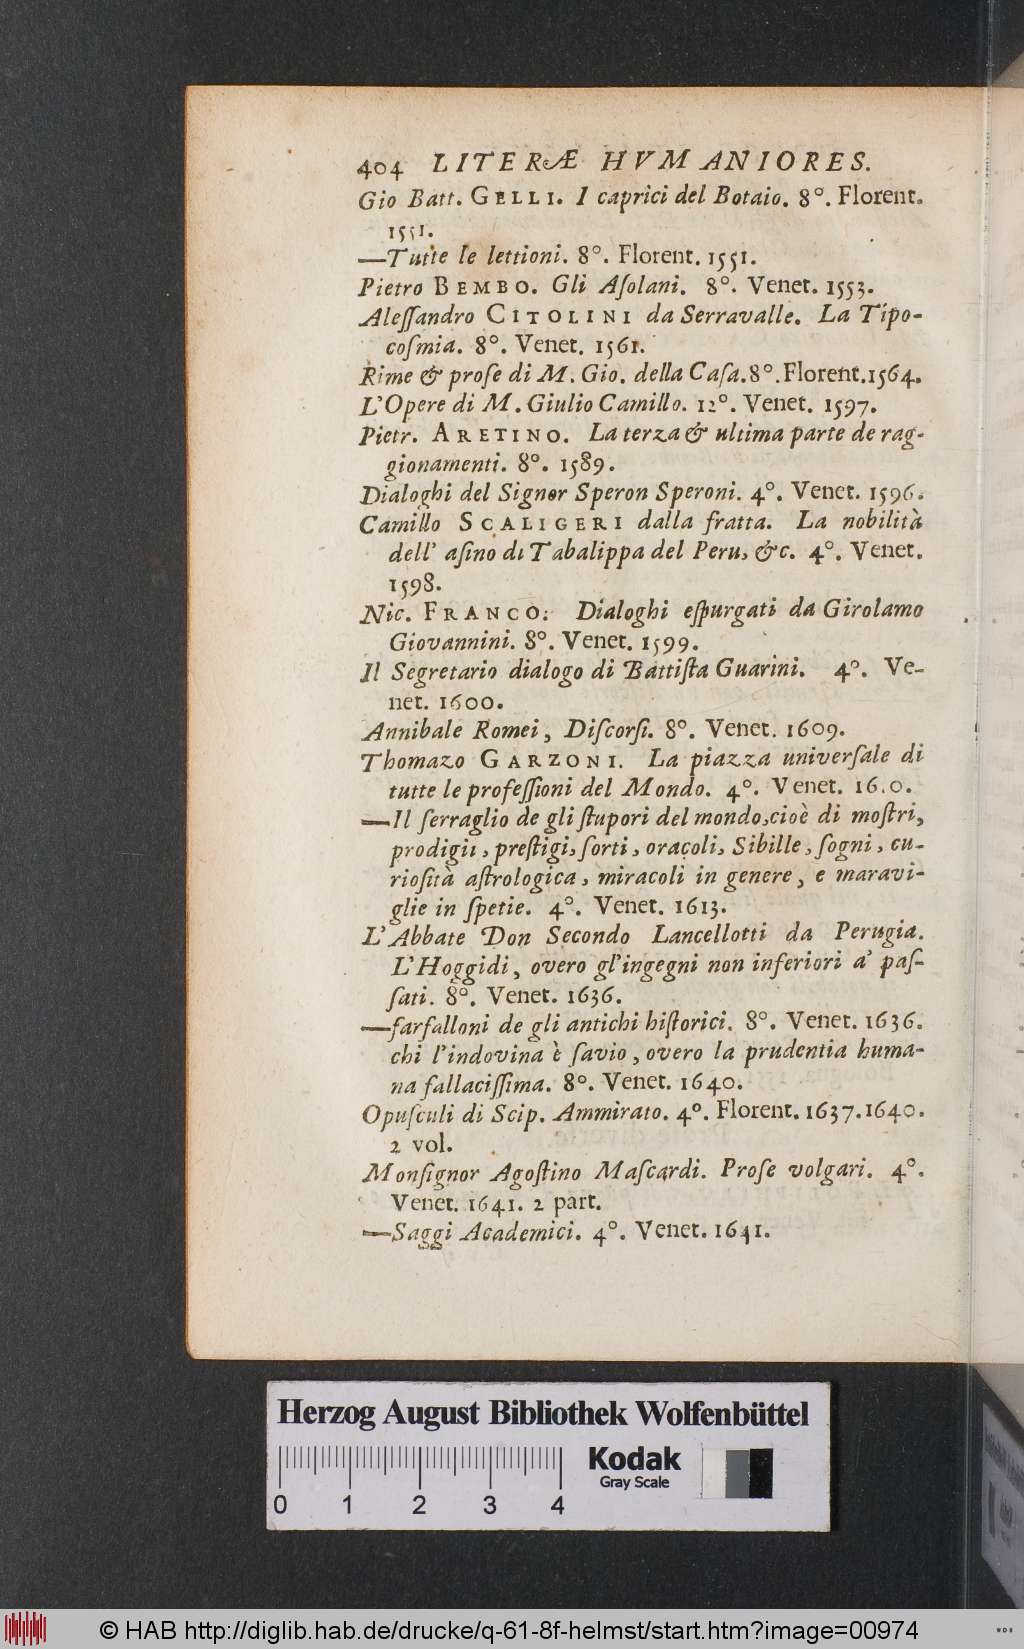 404 LITERÆ HVMANIORES.
Gio Batt. GELLI. I caprici del Botaio. 8°. Florent.
1551.
—Tutte le lettioni. 8°. Florent. 1551.
Pietro BEMBO. Gli Aſolani. 8°. Venet. 1553.
Aleſſandro CITOLINI da Serravalle. La Tipo-
coſmia. 8°. Venet. 1561.
Rime & proſe di M. Gio. della Caſa. 8°. Florent. 1564.
L'Opere di M. Giulio Camillo. 12°. Venet. 1597.
Pietr. ARETINO. La terza & ultima parte de rag-
gionamenti. 8°. 1589.
Dialoghi del Signor Speron Speroni. 4°. Venet. 1596.
Camillo SCALIGERI dalla fratta. La nobilità
dell' aſino di Tabalippa del Peru, &c. 4°. Venet.
1598.
Nic. FRANCO: Dialoghi eſpurgati da Girolamo
Giovannini. 8°. Venet. 1599.
Il Segretario dialogo di Battiſta Guarini. 4°. Ve-
net. 1600.
Annibale Romei, Diſcorſi. 8°. Venet. 1609.
Thomazo GARZONI. La piazza univerſale di
tutte le profeſſioni del Mondo. 4°. Venet. 16.0.
—Il ſerraglio de gli ſtupori del mondo, cioè di moſtri,
prodigii, preſtigi, ſorti, oracoli, Sibille, ſogni, cu-
rioſità aſtrologica, miracoli in genere, e maravi-
glie in ſpetie. 4°. Venet. 1613.
L'Abbate Don Secondo Lancellotti da Perugia.
L'Hoggidi, overo gl'ingegni non inferiori a' paſ-
ſati. 8°. Venet. 1636.
—farfalloni de gli antichi hiſtorici. 8°. Venet. 1636.
chi l'indovina è ſavio, overo la prudentia huma-
na fallaciſſima. 8°. Venet. 1640.
Opuſculi di Scip. Ammirato. 4°. Florent. 1637. 1640.
2 vol.
Monſignor Agoſtino Maſcardi. Proſe volgari. 4°.
Venet. 1641. 2 part.
—Saggi Academici. 4°. Venet. 1641.
Herzog August Bibliothek Wolfenbüttel
Kodak
Gray Scale
0 1 2 3 4
© HAB http://diglib.hab.de/drucke/q-61-8f-helmst/start.htm?image=00974